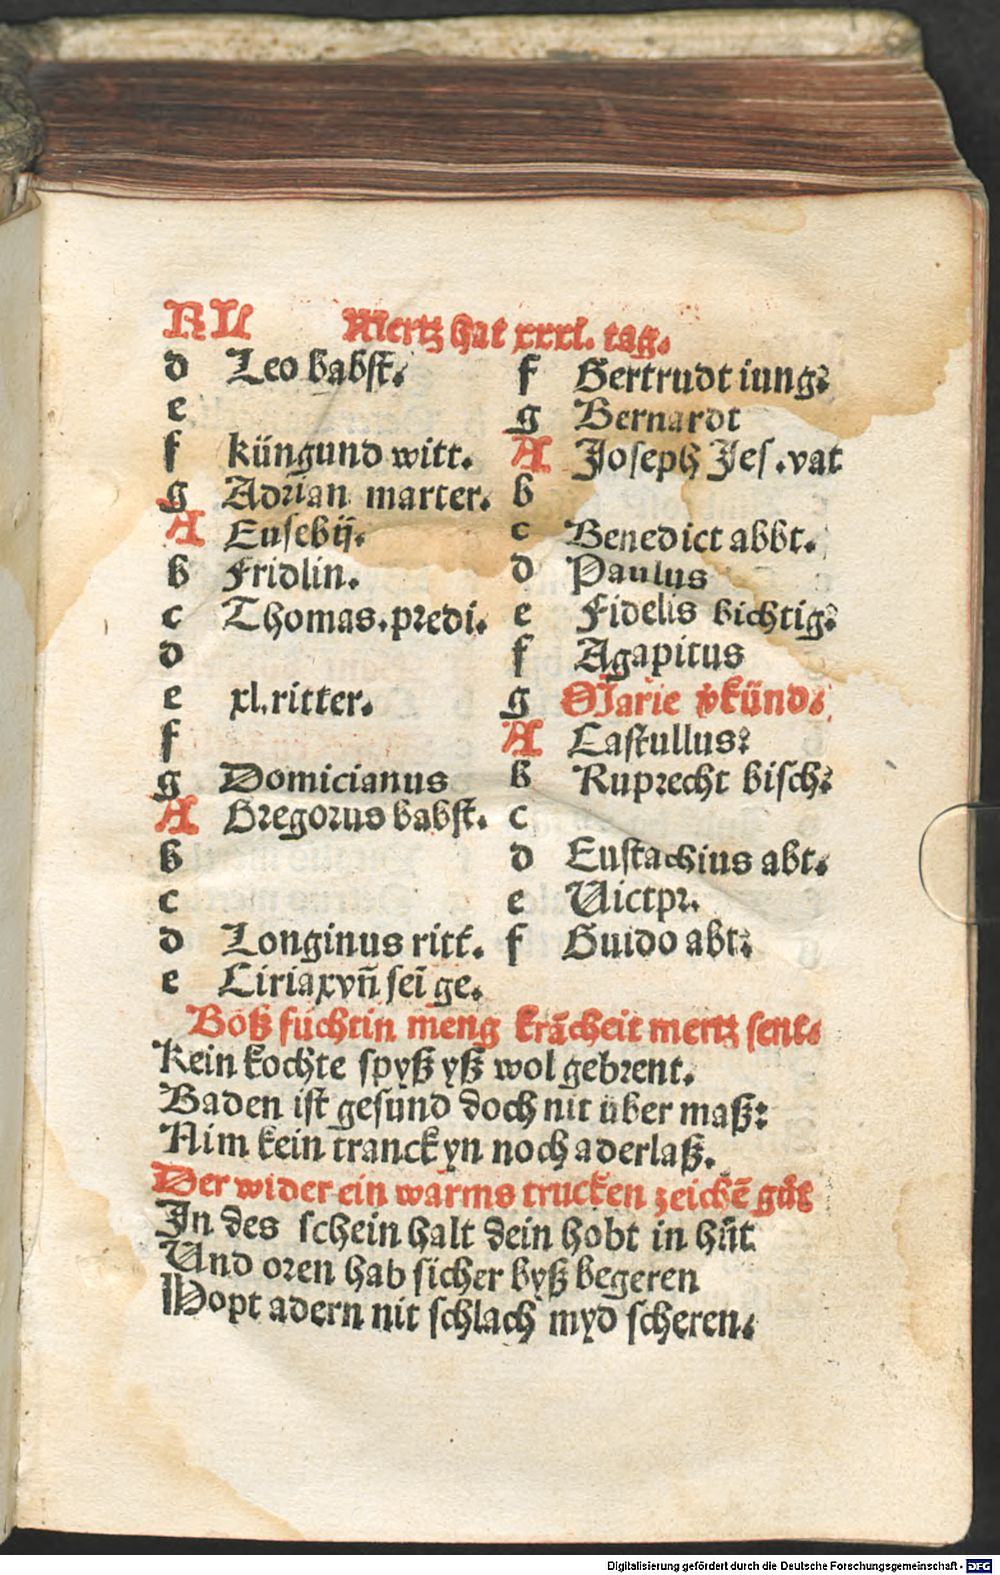 KL Mertz hat xxxi. tag.
d Leo babst.
e
f küngund witt.
g Adrian marter.
A Eusebij.
b Fridlin.
c Thomas. predi.
d
e xl. ritter.
f
g Domicianus
A Gregorus babst.
b
c
d Longinus ritt.
e Ciriax vñ sei ge.
f Gertrudt iung:
g Bernardt
A Joseph Jes. vat
b
c Benedict abbt.
d Paulus
e Fidelis bichtig:
f Agapitus
g Marie v̓künd.
A Castullus:
b Ruprecht bisch:
c
d Eustachius abt.
e Victpr.
f Guido abt:
Böß füchtin meng krãcheit mertz sent.
Kein kochte spyß yß wol gebrent.
Baden ist gesund doch nit über maß:
Nim kein tranck yn noch aderlaß.
Der wider ein warms trucken zeichẽ gůt
In des schein halt dein hobt in hůt
Und oren hab sicher byß begeren
Hopt adern nit schlach myd scheren.
Digitalisierung gefördert durch die Deutsche Forschungsgemeinschaft - DFG